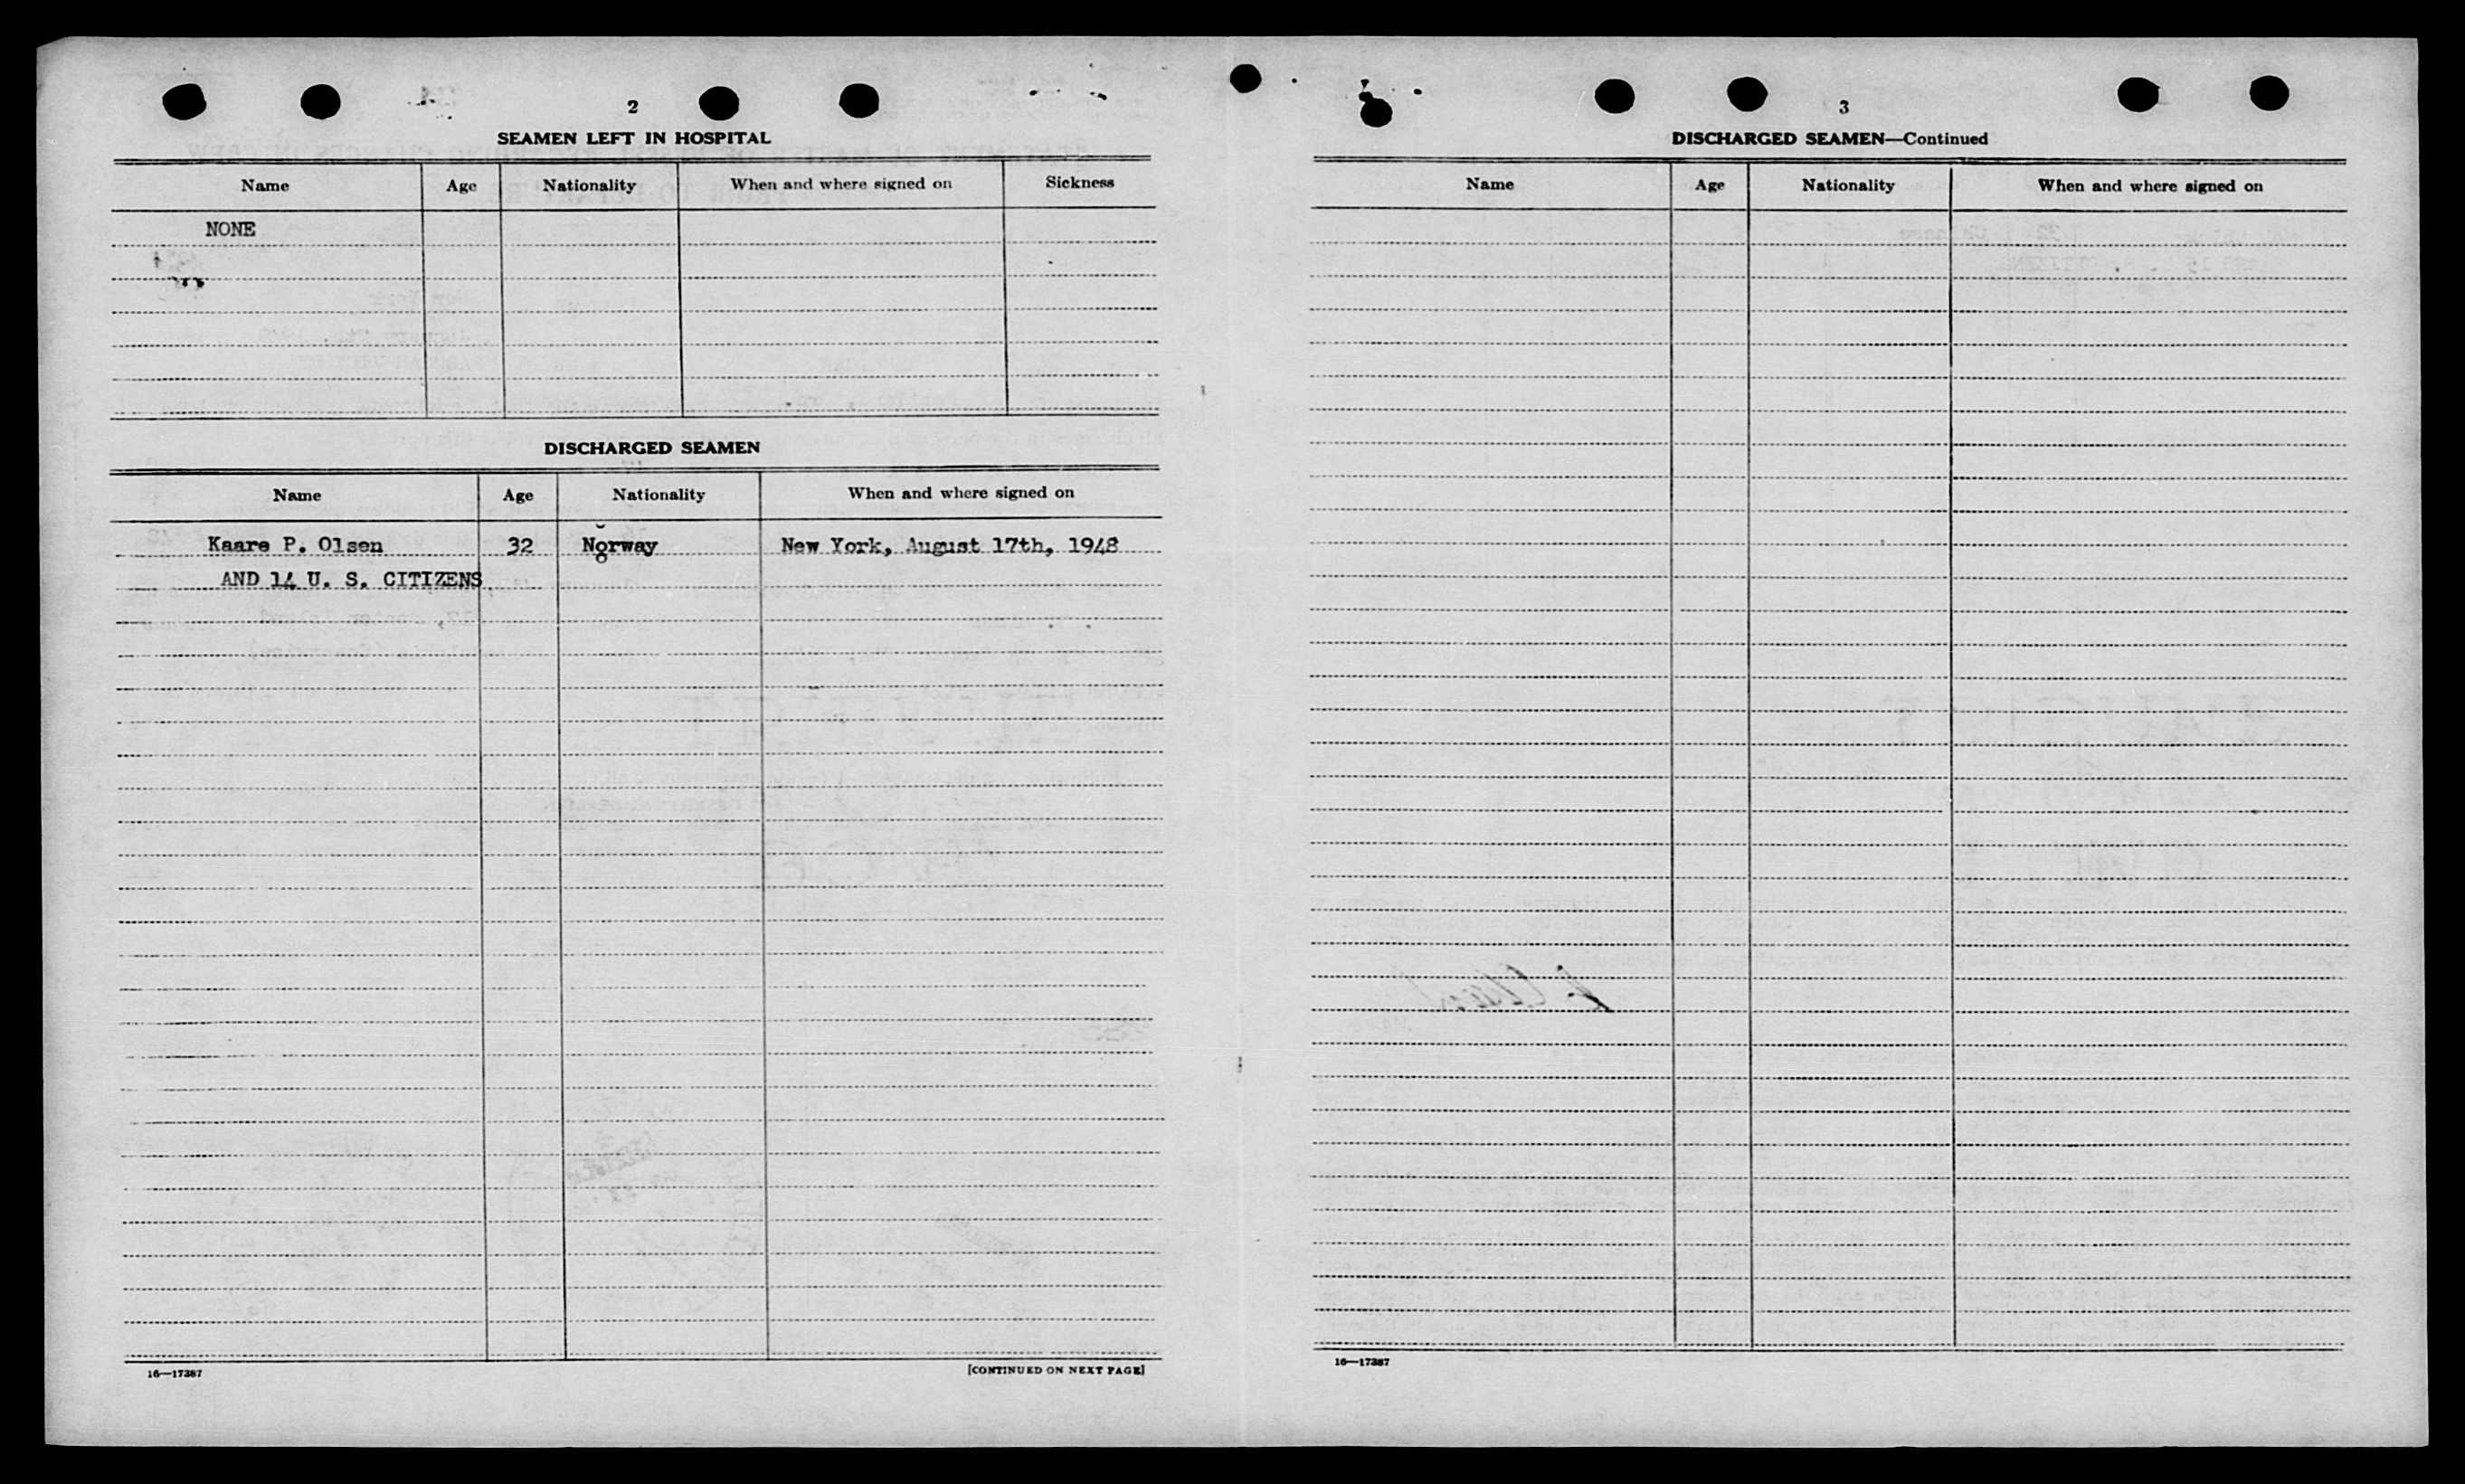 2
SEAMEN LEFT IN HOSPITAL
Name Age Nationality When and where signed on Sickness
NONE
DISCHARGED SEAMEN
Name Age Nationality When and where signed on
Kaare P. Olsen 32 Norway New York, August 17th, 1948
AND 14 U. S. CITIZENS
16—17387 [CONTINUED ON NEXT PAGE]
3
DISCHARGED SEAMEN—Continued
Name Age Nationality When and where signed on
16—17387